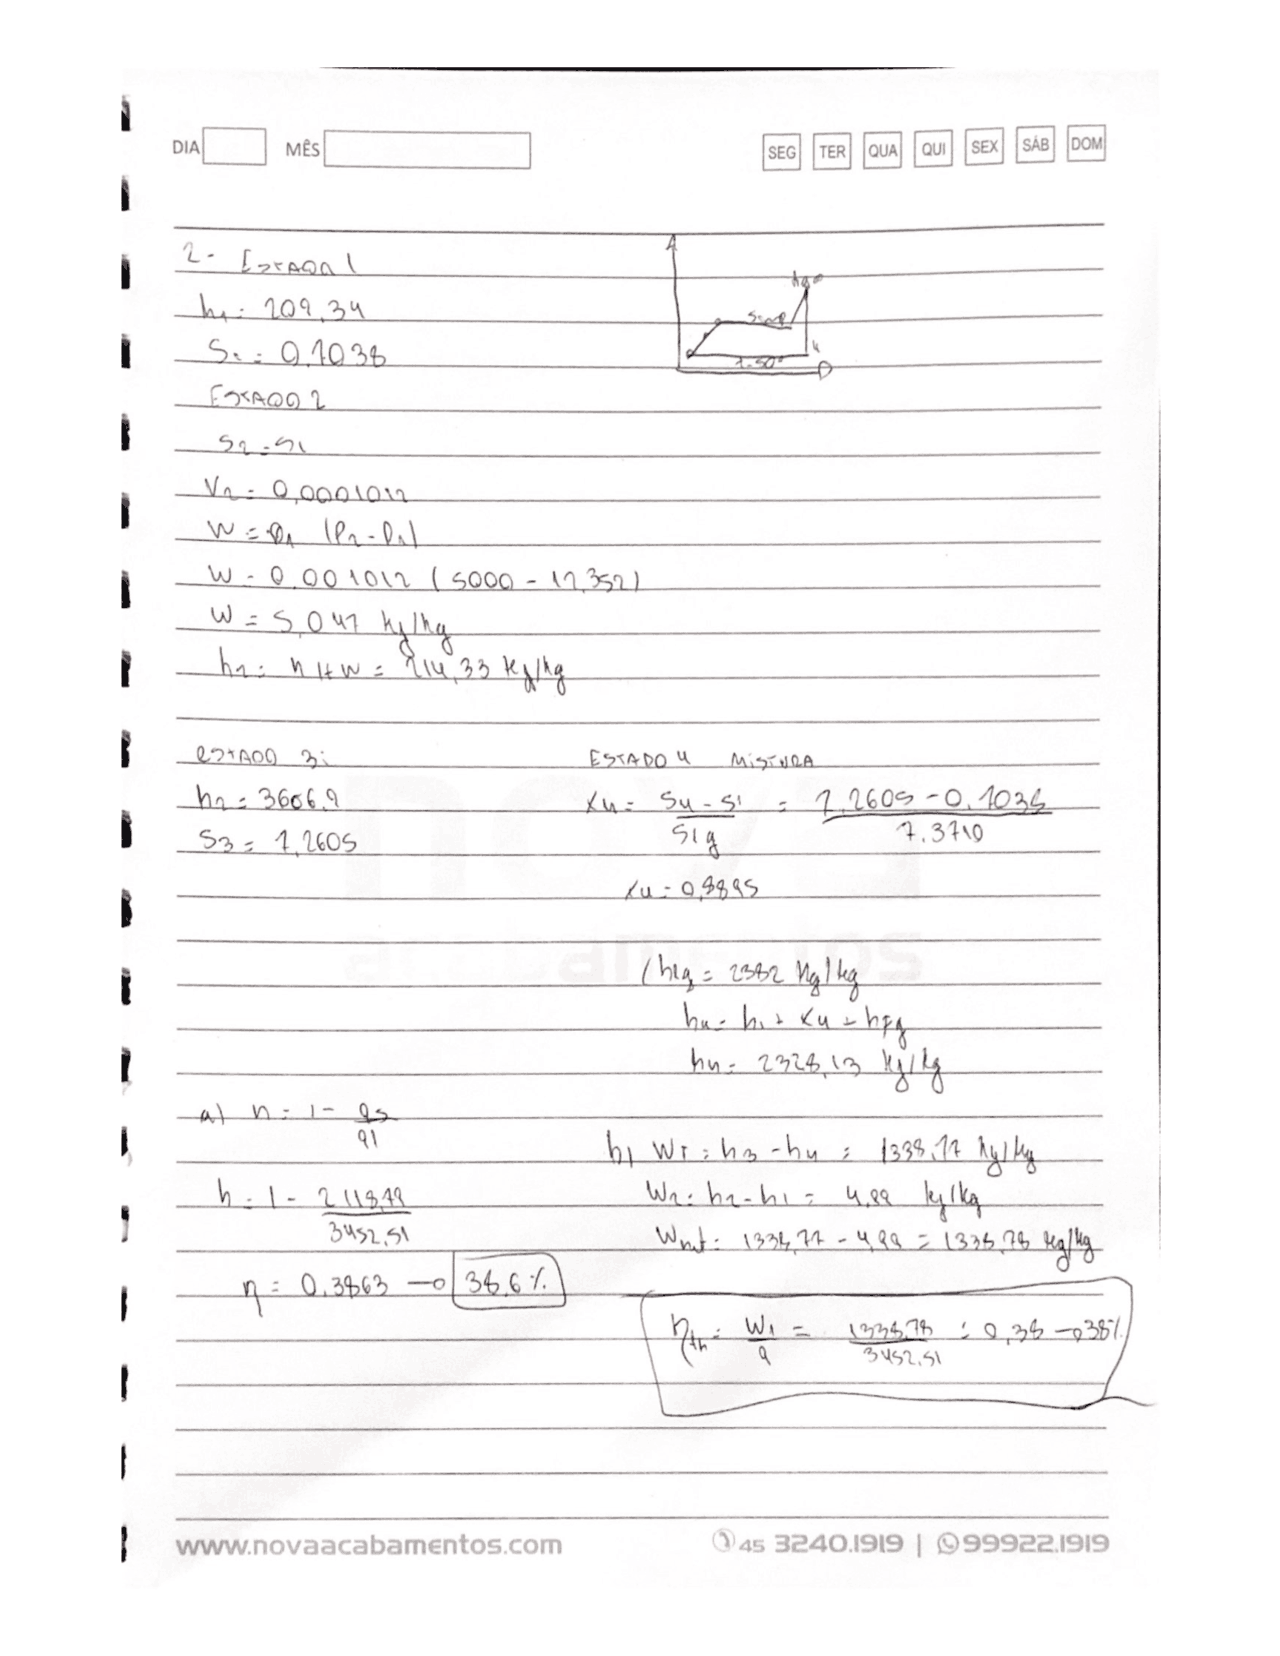 DIA MÊS SEG TER QUA QUI SEX SÁB DOM
2- ESTADO 1
h1 = 209,34
S1 = 0,7038
ESTADO 2
S2 = S1
V2 = 0,0001012
W = v1 (P2 - P1)
W = 0,001012 (5000 - 12,352)
W = 5,047 kj/kg
h2 = h1 + W = 214,33 kj/kg
T=50°
4
ESTADO 3:
h2 = 3606,9
S3 = 7,2605
ESTADO 4 MISTURA
x4 = S4 - S1 / S1g = 7,2605 - 0,7038 / 7,3710
x4 = 0,8895
hlg = 2382 kg/kg
h4 = h1 + x4 + hfg
h4 = 2328,13 kj/kg
a) n = 1 - qs / q1
h = 1 - 2118,79 / 3452,51
η = 0,3863 → 38,6%
b) WT = h3 - h4 = 1338,77 kj/kg
W2 = h2 - h1 = 4,99 kj/kg
Wnt = 1338,77 - 4,99 = 1338,78 kg/kg
ηth = W1 / q = 1338,78 / 3452,51 = 0,38 → 38%
nova
acabamentos
www.novaacabamentos.com 45 3240.1919 | 99922.1919